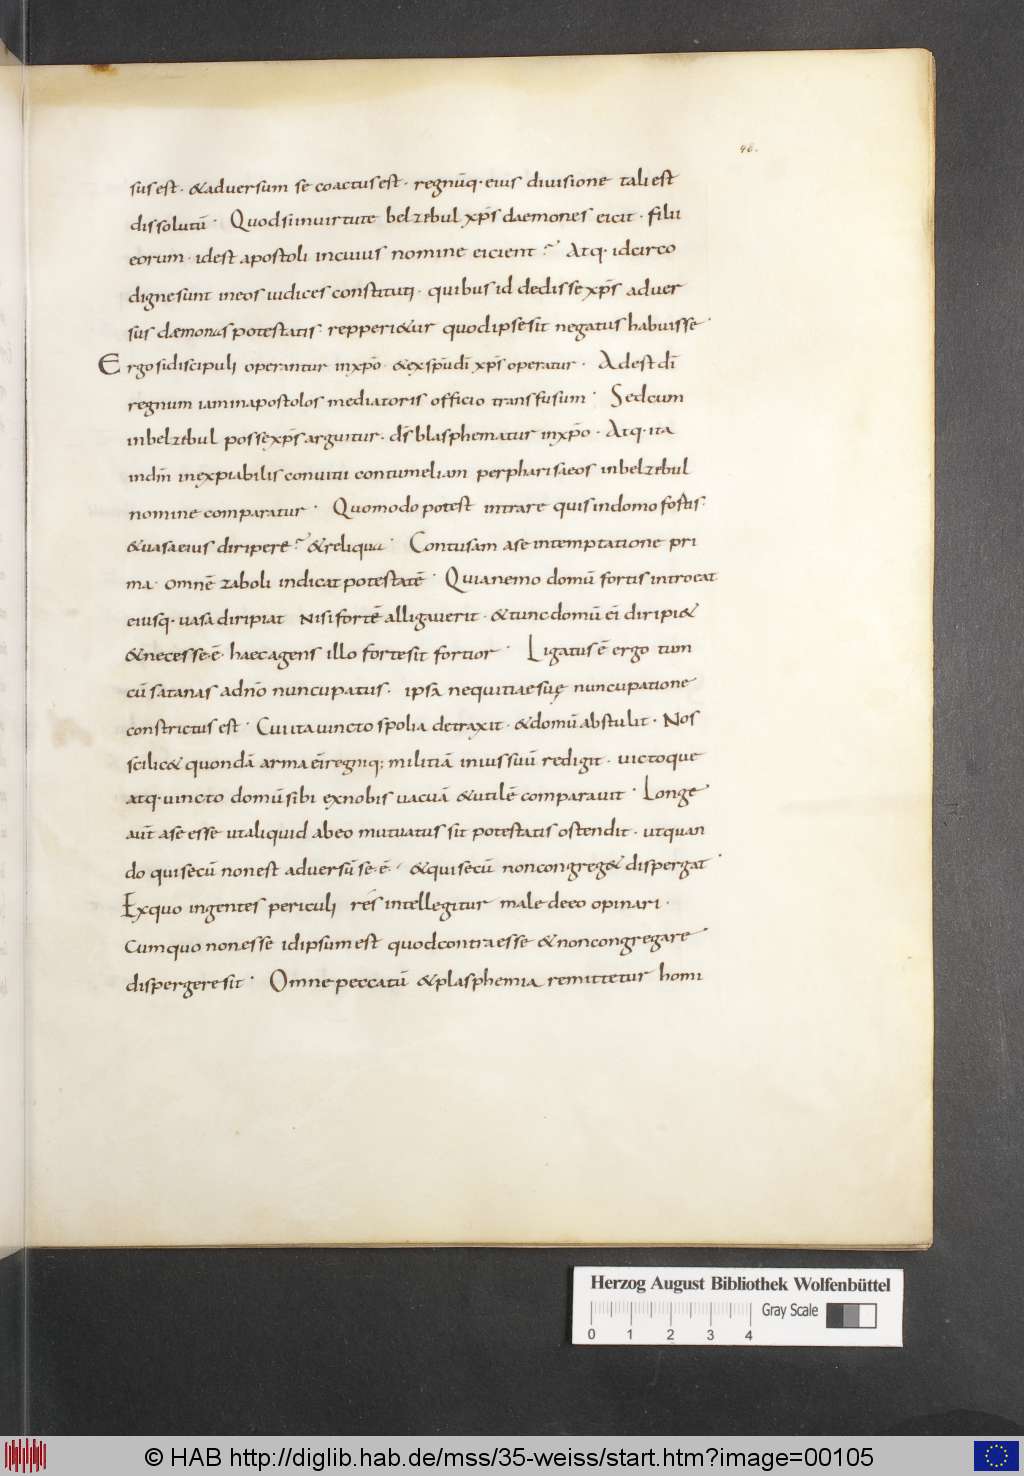 48.
sus est · & adversum se coactus est · regnūq· eius divisione tali est
dissolutū · Quod si in virtute belzebul xp̄s daemones eicit · filii
eorum · id est apostoli in cuius nomine eicient ? Atq· idcirco
digne sunt in eos iudices constituti · quibus id dedisse xp̄s adver
sus dæmonas potestatis repperi&ur quod ipse sit negatus habuisse ·
Ergo si discipuli operantur in xp̄o · & ex sp̄u dī xp̄s operatur · Adest dī
regnum iam in apostolos mediatoris officio transfusum · Sed cum
in belzebul posse xp̄s arguitur · ds̄ blasphematur in xp̄o · Atq· ita
in dm̄ inexpiabilis convitii contumeliam per pharisaeos in belzebul
nomine comparatur · Quomodo potest intrare quis in domo fostis ·
& vasa eius diripere ? & reliqua · Contusam a se in temptatione pri
ma · omnē zaboli indicat potestatē · Quia nemo domū fortis introeat
eiusq· vasa diripiat nisi fortē alligaverit · & tunc domū ei diripi&
& necesse ē · haec agens illo forte sit fortior · Ligatus ē ergo tum
cū satanas a dn̄o nuncupatus · ipsa nequitiae suę nuncupatione
constrictus est · Cui ita vincto spolia detraxit · & domū abstulit · Nos
scilic& quondā arma ei regniq; militiā in ius suū redigit · victoque
atq· vincto domū sibi ex nobis vacuā & utilē comparavit · Longe
aut̄ a se esse ut aliquid ab eo mutuatus sit potestatis ostendit · ut quan
do qui secū non est adversū se · ē · & qui secū non congreg& dispergat ·
Ex quo ingentes periculi res intellegitur male de eo opinari ·
Cum quo non esse id ipsum est quod contra esse & non congregare ·
dispergere sit · Omne peccatū & plasphemia remittetur homi
Herzog August Bibliothek Wolfenbüttel
Gray Scale
0 1 2 3 4
© HAB http://diglib.hab.de/mss/35-weiss/start.htm?image=00105